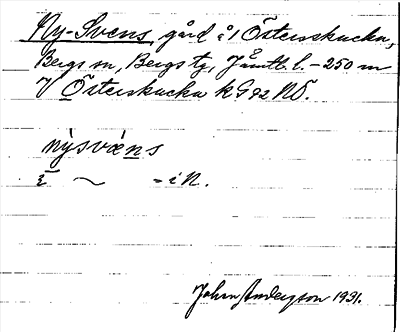 Ny-Svens, gård å 1 Österskucku,
Bergs sn, Bergs tg, Jämtl. l. – 250 m
V Österskucku k G 92 NÖ.
nỳsvæns
i ~ -iṇ.
John Anderzson 1931.